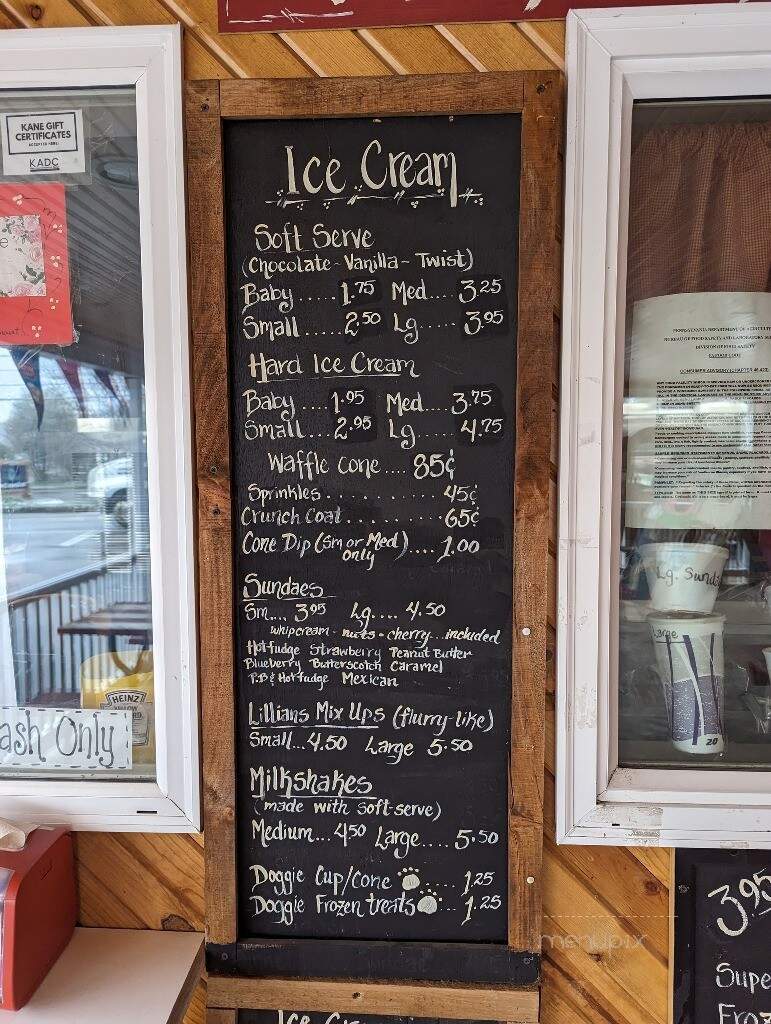 KANE GIFT
CERTIFICATES
KADC
Ice Cream
Soft Serve
(Chocolate - Vanilla - Twist)
Baby ..... 1.75 Med.... 3.25
Small .... 2.50 Lg..... 3.95
Hard Ice Cream
Baby .... 1.95 Med.... 3.75
Small... 2.95 Lg..... 4.75
Waffle cone .... 85¢
Sprinkles . . . . . . . . . . 45¢
Crunch Coat . . . . . . . . 65¢
Cone Dip (Sm or Med) .... 1.00
only
Sundaes
Sm.... 3.95 Lg.... 4.50
whipcream - nuts - cherry...included
Hot fudge Strawberry Peanut Butter
Blueberry Butterscotch Caramel
P.B & Hot fudge Mexican
Lillians Mix Ups (flurry-like)
Small...4.50 Large 5.50
Milkshakes
(made with soft-serve)
Medium...4.50 Large..... 5.50
Doggie Cup/Cone .... 1.25
Doggie Frozen treats ... 1.25
HEINZ
ash Only
PENNSYLVANIA DEPARTMENT OF AGRICULTU
BUREAU OF FOOD SAFETY AND LABORATORY
DIVISION OF FOOD SAFETY
CONSUMER ADVISORY (CHAPTER 46.423)
Lg. Sunda
Large
20
3.95
Supe
Froz
menupix
Ice Cr